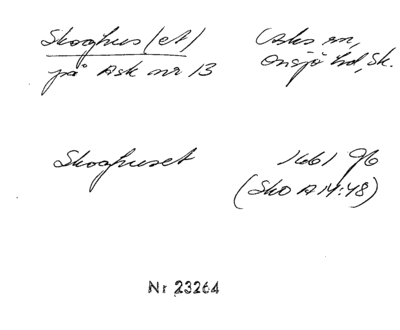 Skoghus(et) Asks sn,
på Ask nr 13 Onsjö hd, Sk.
Skoghuset 1661
(Sko A 14:48)
Nr 23264